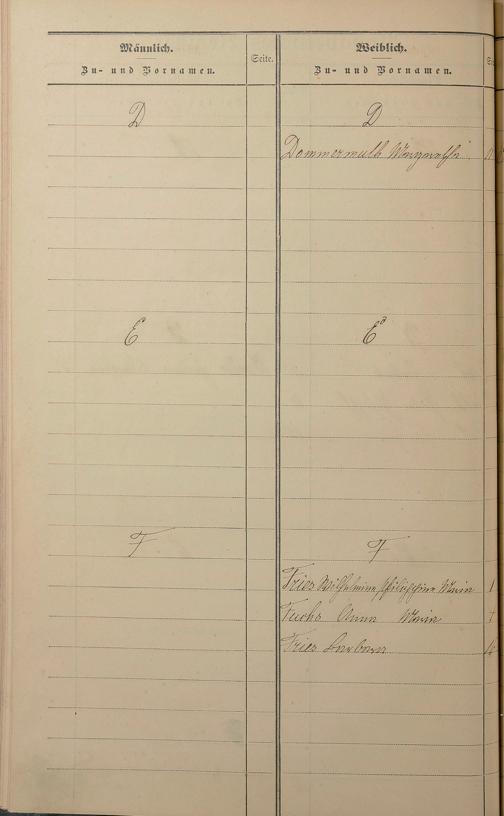 Männlich.
Zu- und Vornamen.
Seite.
Weiblich.
Zu- und Vornamen.
D
D
Dommermuth Margaretha
E
E
F
F
Fries Wilhelmine Philippine Maria 1
Fuchs Anna Maria 7
Fries Barbara